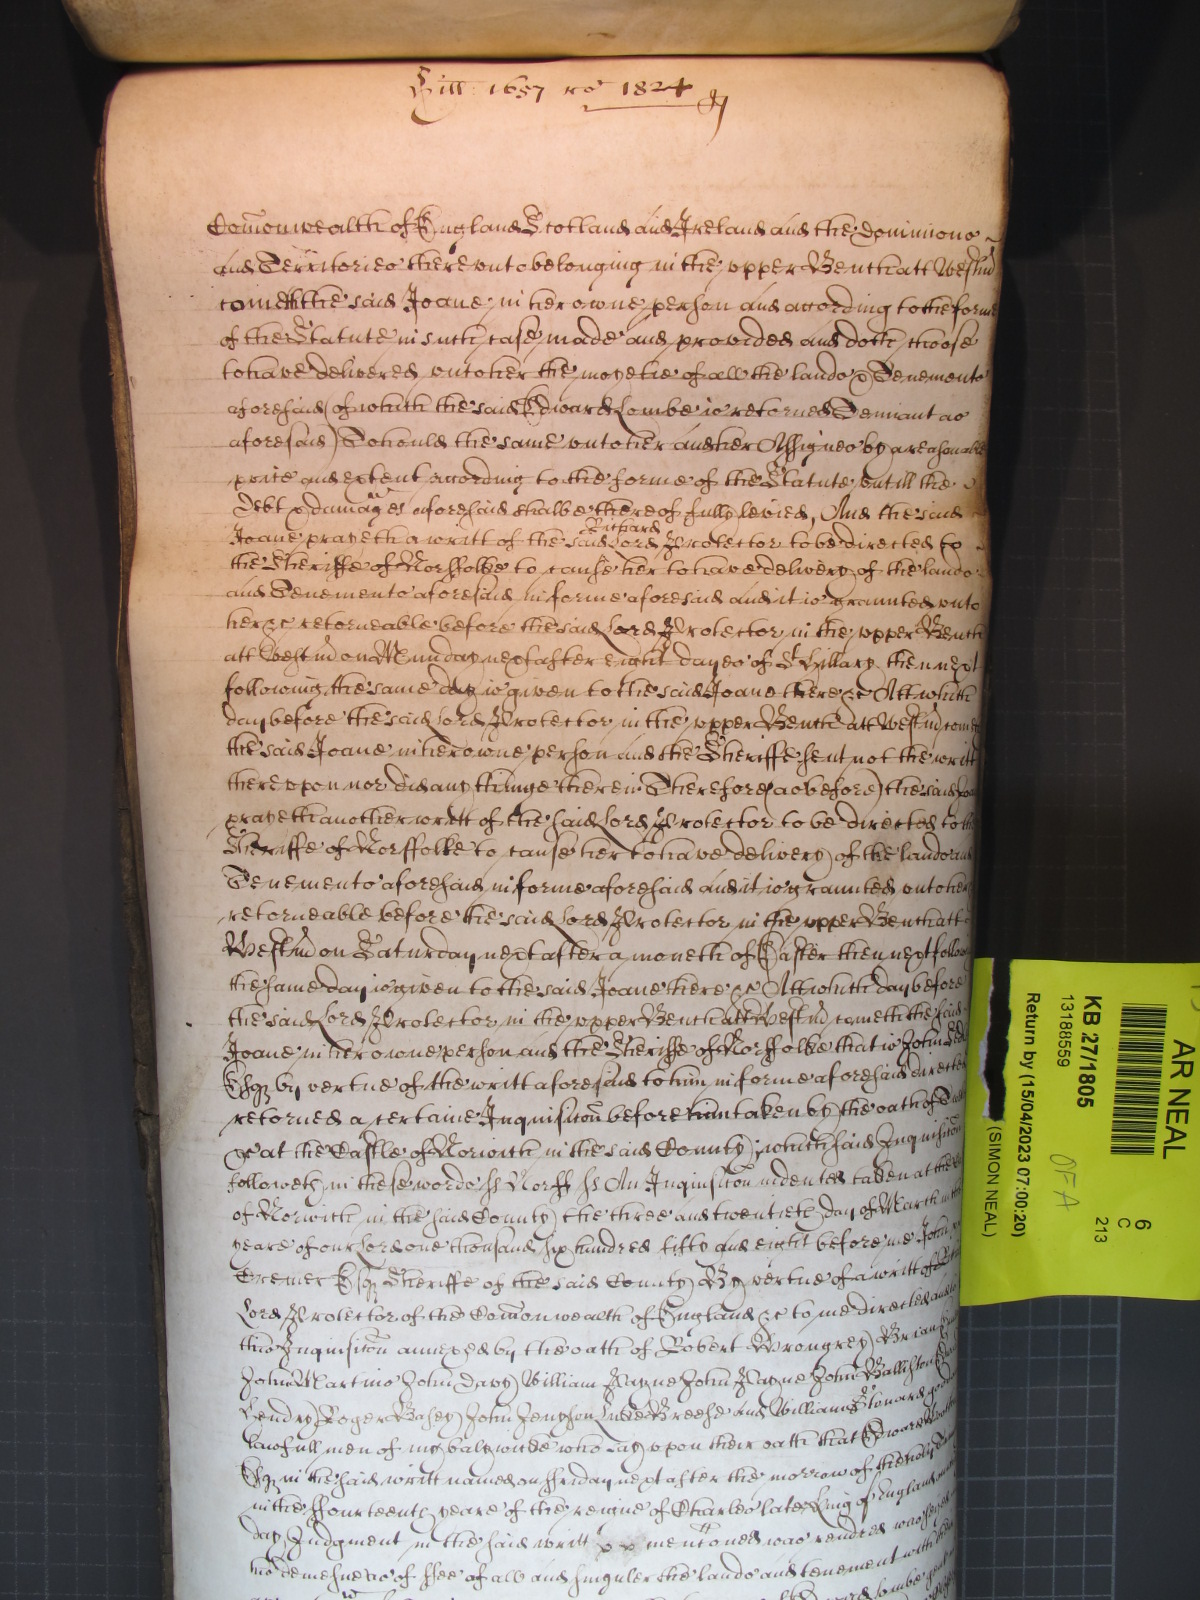 Hill 1657 ro 1824
Com̄onwealth of England Scotland and Ireland and the Dominions
and Territories thereunto belonging in the upper Bench att Westm̄
cometh the said Joane in her owne person and according to the forme
of the Statute in such case made and provided and doth choose
to have delivered unto her the moyetie of all the lands & Tenements
aforesaid (of which the said Edward Lombe is returned Tennant as
aforesaid) To hould the same unto her and her Assignes by a reasonable
price and extent according to the forme of the Statute untill the
Debt & damages aforesaid shalbe thereof fully levied, And the said
Joane prayeth a writt of the said Richard Lord Protector to be directed to
the Sheriffe of Norffolke to cause her to have delivery of the lands
and Tenements aforesaid in forme aforesaid and it is graunted unto
her &c retorneable before the said Lord Protector in the upper Bench
att Westm̄ on Munday next after eight dayes of St Hillary then next
following the same day is given to the said Joane there &c Att which
day before the said Lord Protector in the upper Bench att Westm̄ cometh
the said Joane in her owne person and the Sheriffe sent not the writt
thereupon nor did any thinge therein Therefore (as before) the said
prayeth another writt of the said Lord Protector to be directed to the
Sheriffe of Norffolke to cause her to have delivery of the lands and
Tenements aforesaid in forme aforesaid and it is graunted unto her
retorneable before the said Lord Protector in the upper Bench att
Westm̄ on Saturday next after a moneth of Easter then next follow
the same day is given to the said Joane there &c Att which day before
the said Lord Protector in the upper Bench att Westm̄ cometh the said
Joane in her owne person and the Sheriffe of Norffolke that is John
Esqr by vertue of the writt aforesaid to him in forme aforesaid directed
retorned a certaine Inquisic̄on before him taken by the oath of
&c at the Castle of Norwich in the said County which said Inquisic̄on
followeth in these words ss Norff ss An Inquisic̄on indented taken at the
of Norwich in the said County the three and twentieth day of March in the
yeare of our Lord one thousand six hundred fifty and eight before me John
Cremer Esqr Sheriffe of the said County By vertue of a writt of
Lord Protector of the Com̄on wealth of England &c to me directed and
this Inquisic̄on annexed by the oath of Robert Wrongrey Brian
John Martins John Davy William Payne John Payne John Ballistone
Hendry Roger Basey John Jenyson Luke Breese and William Howard good
lawfull men of my balywicke who say upon their oath that Edward
Esqr in the said writt named on Friday next after the morrow of the holy
in the ffourteenth yeare of the reigne of Charles late King of England
day Judgment in the said writt menc̄oned was rendred was seized
his demesne as of ffee of all and singuler the lands and tenement with
AR NEAL
6
C
213
KB 27/1805
13188559
Return by (15/04/2023 07:00:20)
(SIMON NEAL)